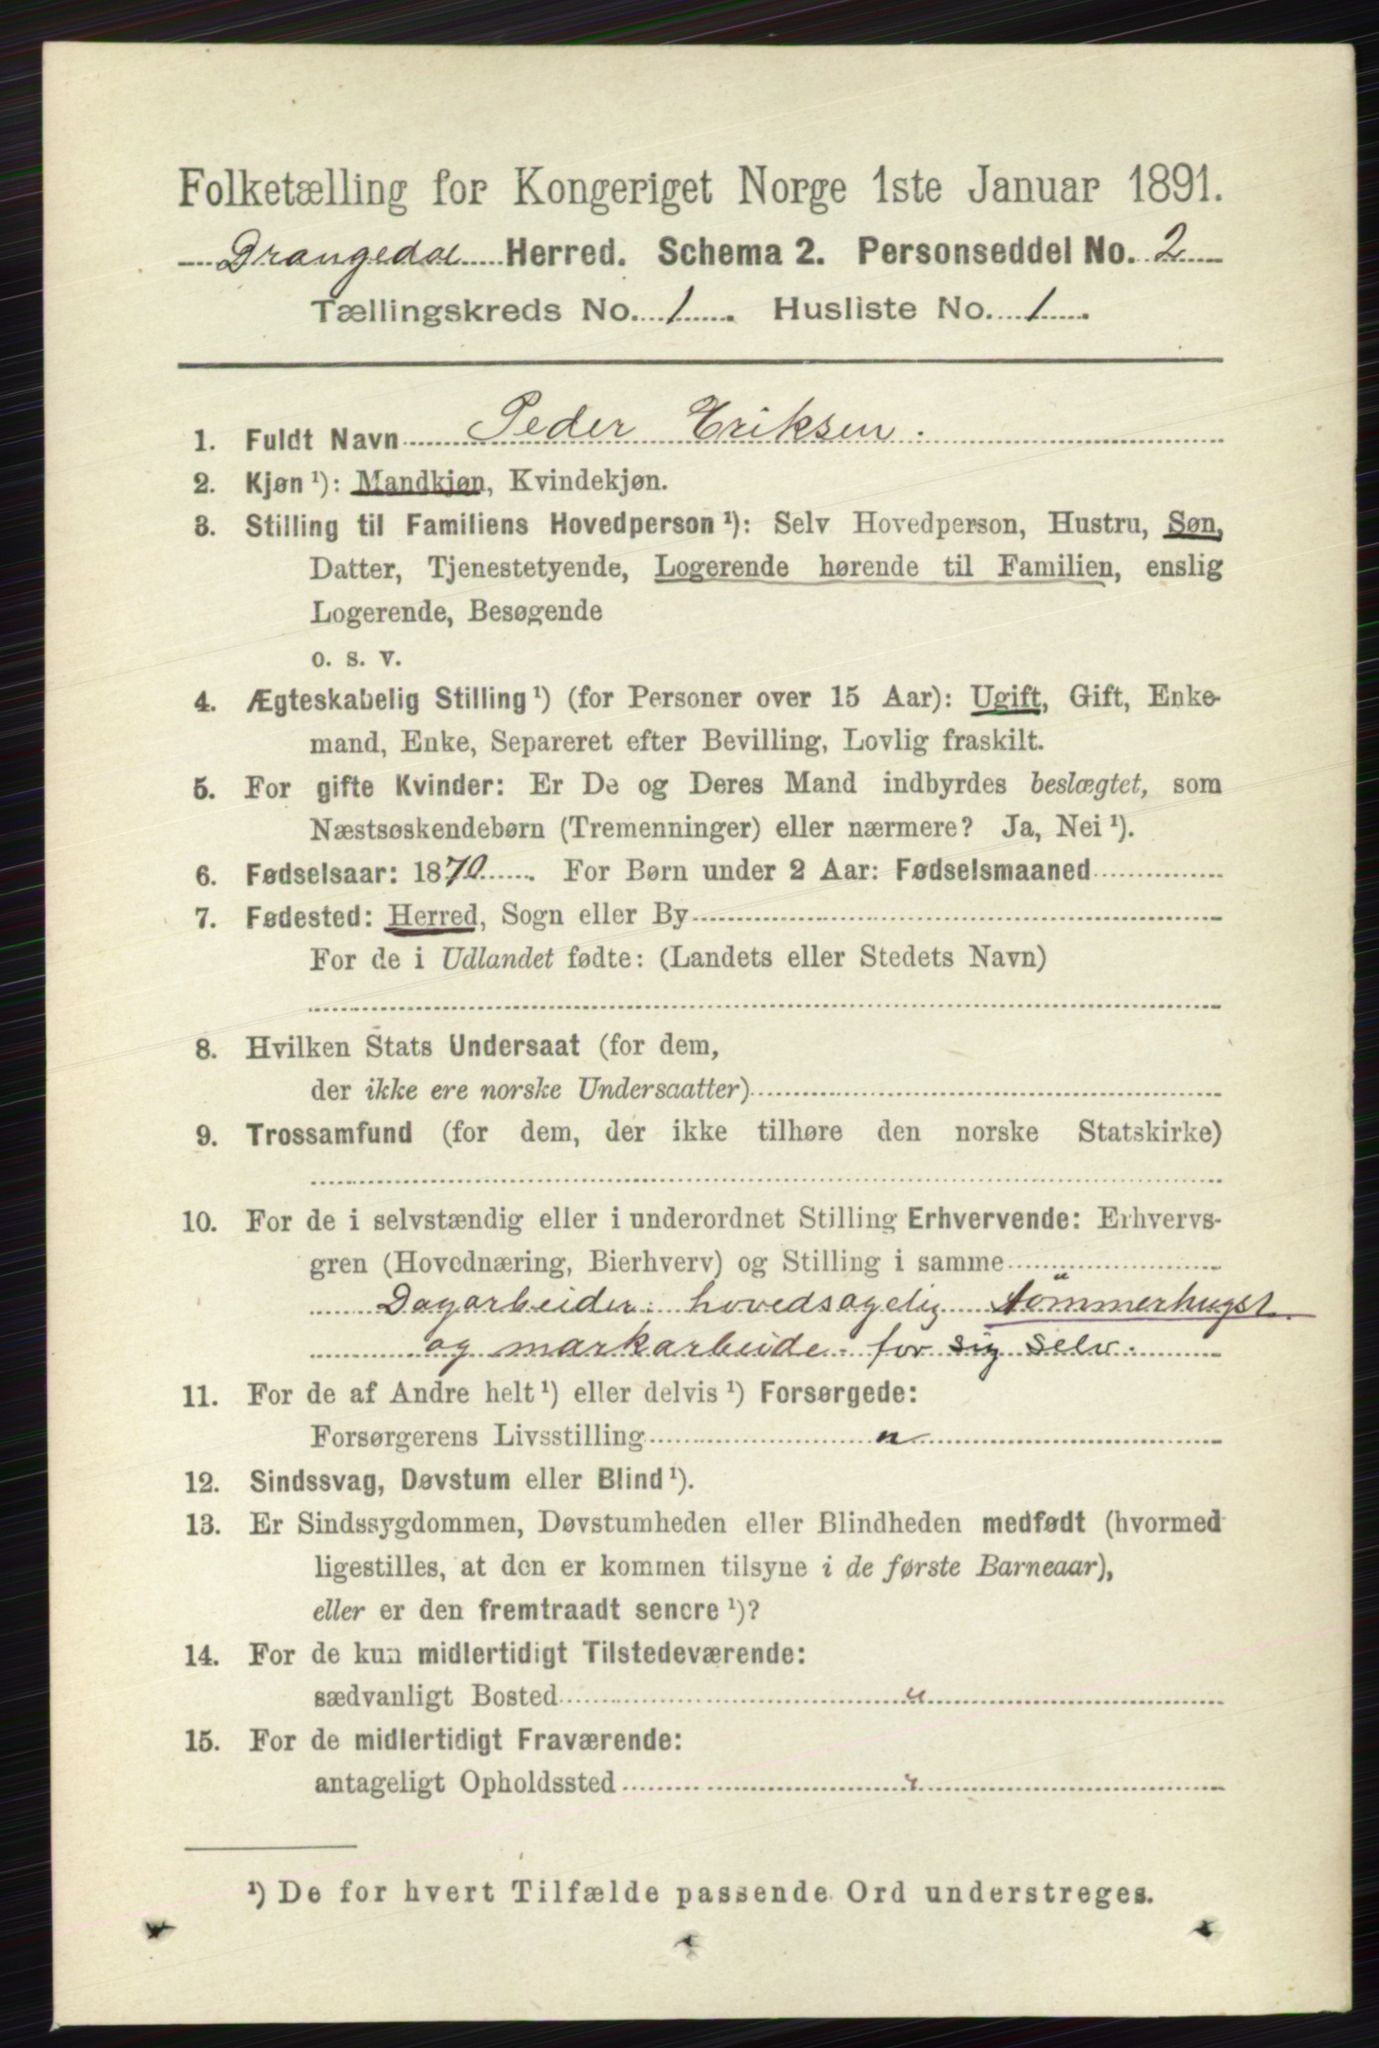 Folketælling for Kongeriget Norge 1ste Januar 1891.
Drangedal Herred. Schema 2. Personseddel No. 2
Tællingskreds No. 1. Husliste No. 1.
1. Fuldt Navn Peder Eriksen.
2. Kjøn ¹): Mandkjøn, Kvindekjøn.
3. Stilling til Familiens Hovedperson ¹): Selv Hovedperson, Hustru, Søn,
Datter, Tjenestetyende, Logerende hørende til Familien, enslig
Logerende, Besøgende
o. s. v.
4. Ægteskabelig Stilling ¹) (for Personer over 15 Aar): Ugift, Gift, Enke-
mand, Enke, Separeret efter Bevilling, Lovlig fraskilt.
5. For gifte Kvinder: Er De og Deres Mand indbyrdes beslægtet, som
Næstsøskendebørn (Tremenninger) eller nærmere? Ja, Nei ¹).
6. Fødselsaar: 1870. For Børn under 2 Aar: Fødselsmaaned
7. Fødested: Herred, Sogn eller By
For de i Udlandet fødte: (Landets eller Stedets Navn)
8. Hvilken Stats Undersaat (for dem,
der ikke ere norske Undersaatter)
9. Trossamfund (for dem, der ikke tilhøre den norske Statskirke)
10. For de i selvstændig eller i underordnet Stilling Erhvervende: Erhvervs-
gren (Hovednæring, Bierhverv) og Stilling i samme
Dagarbeider: hovedsagelig tömmerhugst
og markarbeide. for sig selv.
11. For de af Andre helt ¹) eller delvis ¹) Forsørgede:
Forsørgerens Livsstilling "
12. Sindssvag, Døvstum eller Blind ¹).
13. Er Sindssygdommen, Døvstumheden eller Blindheden medfødt (hvormed
ligestilles, at den er kommen tilsyne i de første Barneaar),
eller er den fremtraadt senere ¹)?
14. For de kun midlertidigt Tilstedeværende:
sædvanligt Bosted "
15. For de midlertidigt Fraværende:
antageligt Opholdssted "
¹) De for hvert Tilfælde passende Ord understreges.